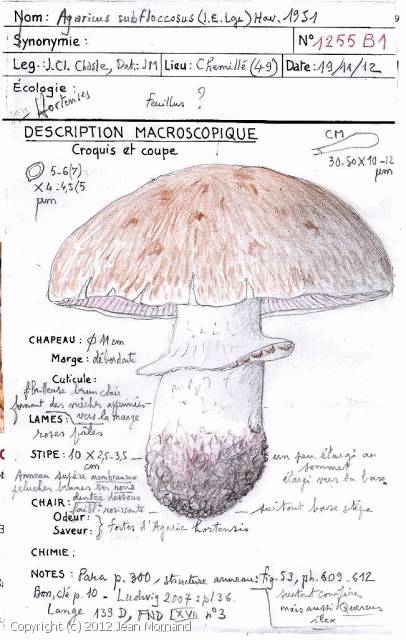 Nom: Agaricus subfloccosus (J.E. Lge) Hav. 1951
9
Synonymie:
N° 1255 B1
Leg.: J.Cl. Chasle, Det.: JM
Lieu: Chemillé (49)
Date: 19/11/12
Écologie:
Hortensies
feuillus ?
DESCRIPTION MACROSCOPIQUE
Croquis et coupe
CM
30-50 X 10-12
µm
5-6(7)
X 4-4,5(5
µm
CHAPEAU: Ø 11 cm
Marge: débordante
Cuticule:
fibrilleuse brun clair
formant des mèches apprimées
vers la marge
LAMES:
roses pâles
STIPE: 10 X 2,5-3,5
cm
Anneau supère membraneux
peluches brunes en roue
dentée dessous
CHAIR: faibl. rosissante
Odeur:
Saveur: } fortes d'Agaric hortensis
un peu élargi au
sommet
élargi vers la base
surtout base stipe
CHIMIE:
NOTES: Para p. 300, structure anneau: fig. 53, ph. 609-612
Bon, clé p. 10 - Ludwig 2007: pl 36.
Lange 139 D, FND LXVII n°3
surtout conifères
mais aussi Quercus
ilex
Copyright (c) 2012 Jean Mornand